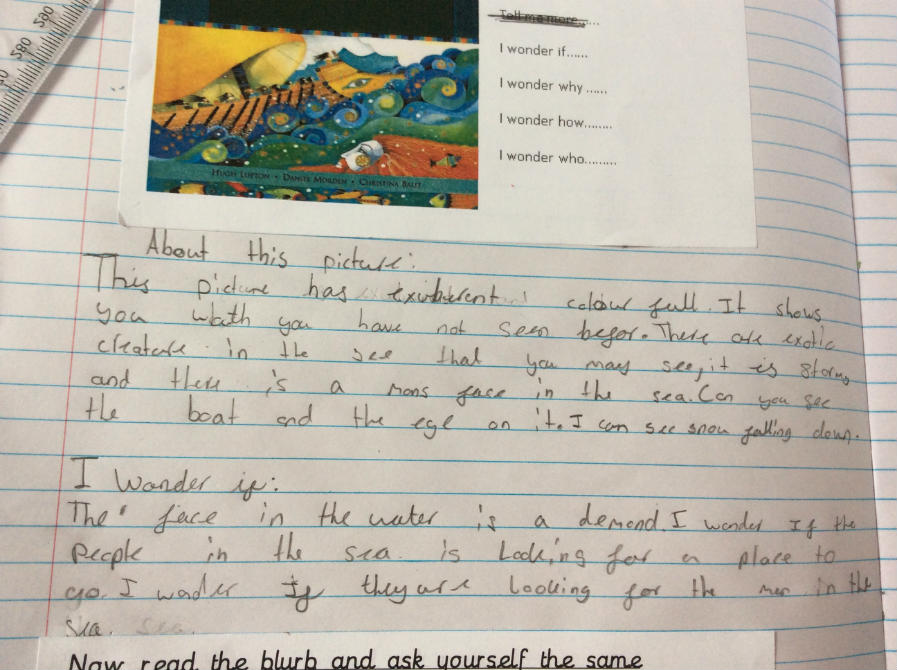 580
580
Tell me more.....
I wonder if......
I wonder why ......
I wonder how........
I wonder who.........
HUGH LUPTON • DANIEL MORDEN • CHRISTINA BALIT
About this picture:
This picture has exuberent colour full. It shows
you wath you have not seen befor. There are exotic
creature in the see that you may see, it is stormy
and there is a mans face in the sea. Can you see
the boat and the eye on it. I can see snow falling down.
I Wonder if:
The face in the water is a demond. I wonder If the
people in the sea is Looking for a place to
go. I woder If they are looking for the men in the
sea.
Now read the blurb and ask yourself the same